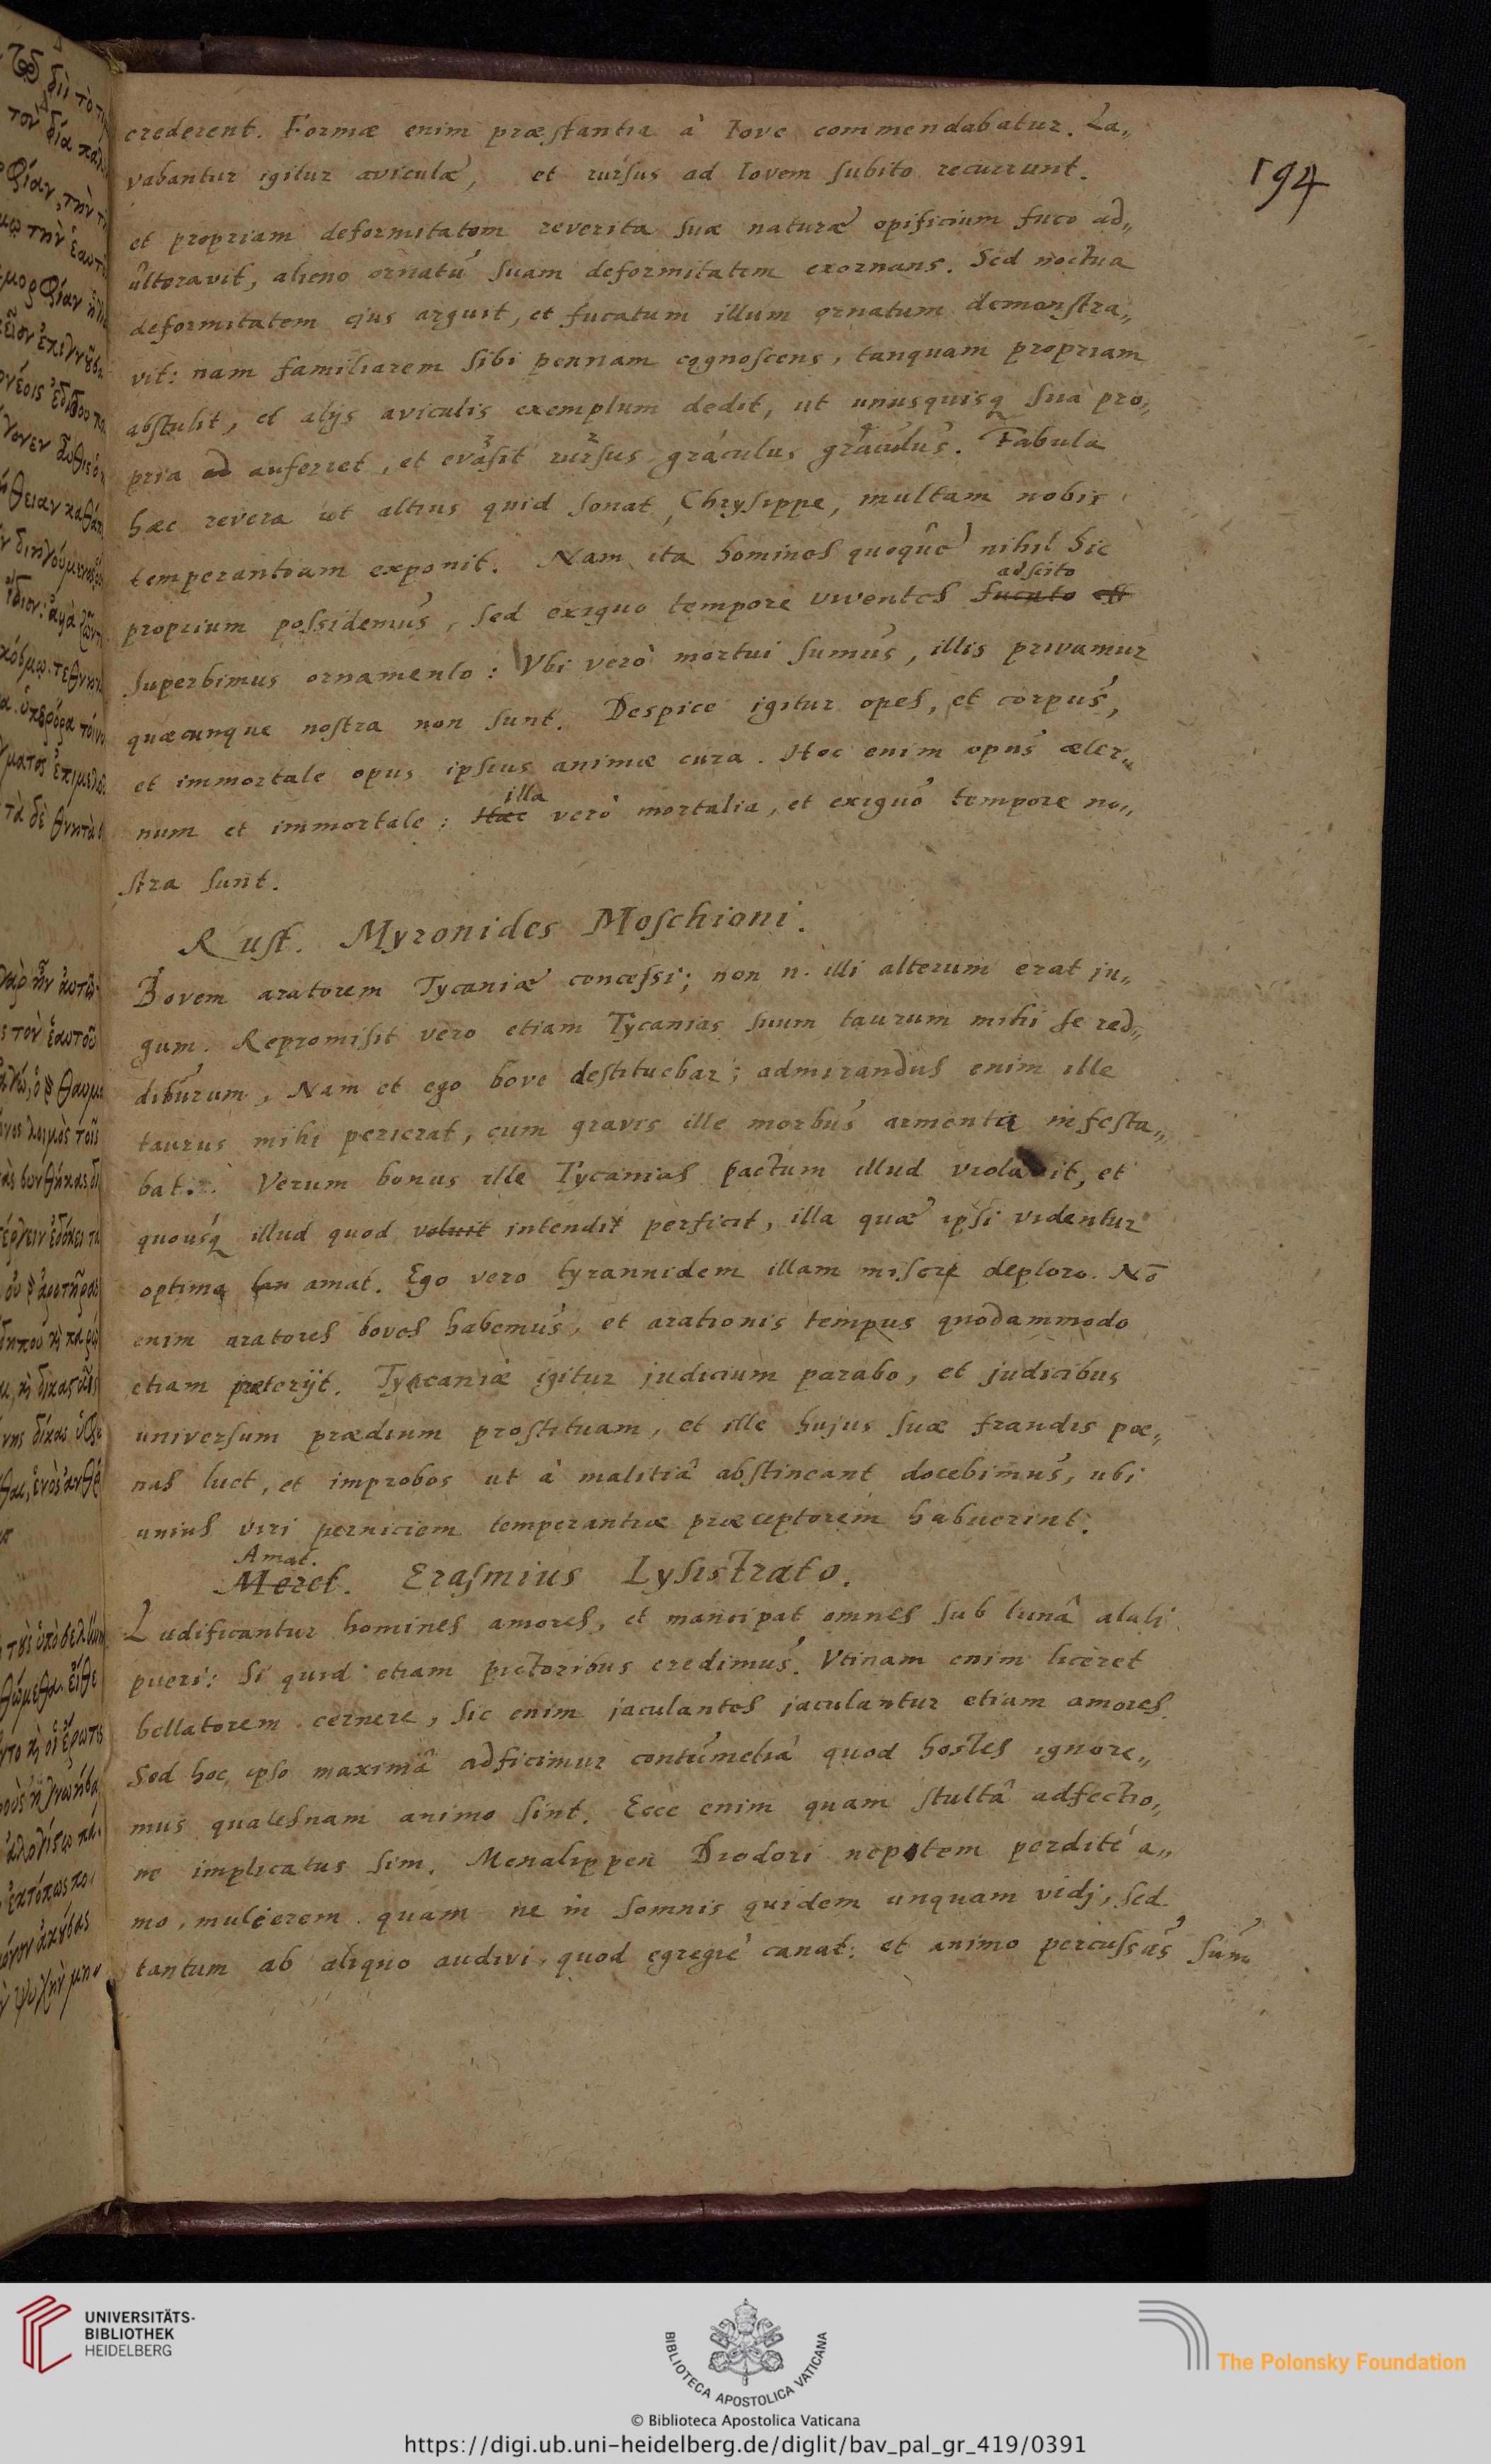 194
crederent. Formæ enim præstantia à Iove commendabatur. La„
vabantur igitur aviculæ, et rursus ad Iovem subito recurrunt.
et propriam deformitatem reverita suæ naturæ opificium fuco ad„
ulteravit, alieno ornatu suam deformitatem exornans. Sed noctua
deformitatem ejus arguit, et fucatum illum ornatum demonstra„
vit: nam familiarem sibi pennam cognoscens, tanquam propriam
abstulit, et alijs aviculis exemplum dedit, ut unusquisq sua pro„
pria ad auferret, et evasit rursus graculus graculus. Fabula
hæc revera ut altius quid sonat, Chrysippe, multam nobis
temperantiam exponit. Nam ita homines quoque nihil hic
adscito
proprium possidemus, sed exiguo tempore viventes fucato est
superbimus ornamento: Vbi verò mortui sumus, illis privamur
quæcunque nostra non sunt. Despice igitur opes, et corpus,
et immortale opus ipsius animæ cura. Hoc enim opus æter„
illa
num et immortale: Hæc verò mortalia, et exiguo tempore no„
stra sunt.
Rust. Myronides Moschioni.
Bovem aratorem Tycaniæ concessi; non n. illi alterum erat ju„
gum. Repromisit vero etiam Tycanias suum taurum mihi se red„
diturum, Nam et ego bove destituebar; admirandus enim ille
taurus mihi perierat, cum gravis ille morbus armenta infesta„
bat. Verum bonus ille Tycanias pactum illud violavit, et
quousq illud quod voluit intendit perficit, illa quæ ipsi videntur
optima tan amat. Ego vero tyrannidem illam misere deploro. Nō
enim aratores boves habemus, et arationis tempus quodammodo
etiam præterijt. Tycaniæ igitur judicium parabo, et judicibus
universum prædium prostituam, et ille hujus suæ fraudis pœ„
nas luet, et improbos ut à malitiâ abstineant docebimus, ubi
unius viri perniciem temperantiæ præceptorem habuerint.
Amat.
Meret. Erasmius Lysistrato.
Ludificantur homines amores, et mancipat omnes sub lunâ alati
pueri: Si quid etiam pictoribus credimus. Vtinam enim liceret
bellatorem cernere, sic enim jaculantes jaculantur etiam amores.
Sed hoc ipso maximâ adficimur contumeliâ quod hostes ignore„
mus qualesnam animo sint. Ecce enim quam stultâ adfectio„
ne implicatus sim. Menalippen Diodori nepotem perditè a„
mo, mulierem quam ne in somnis quidem unquam vidj, sed
tantum ab aliquo audivi, quod egregiè canat: et animo percussus sum„
UNIVERSITÄTS-
BIBLIOTHEK
HEIDELBERG
BIBLIOTECA APOSTOLICA VATICANA
The Polonsky Foundation
© Biblioteca Apostolica Vaticana
https://digi.ub.uni-heidelberg.de/diglit/bav_pal_gr_419/0391